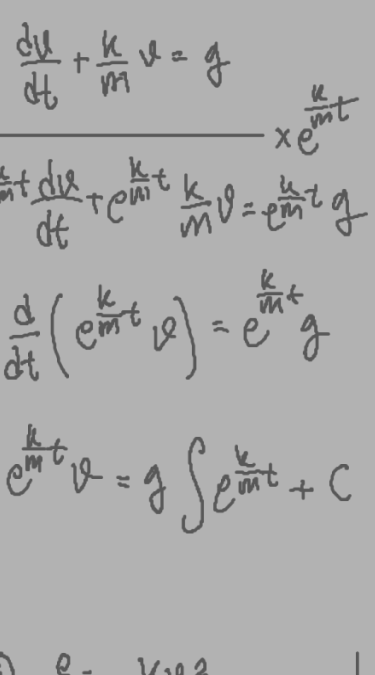 dv/dt + k/m v = g
× e^{k/m t}
e^{k/m t} dv/dt + e^{k/m t} k/m v = e^{k/m t} g
d/dt (e^{k/m t} v) = e^{k/m t} g
e^{k/m t} v = g ∫ e^{k/m t} + C